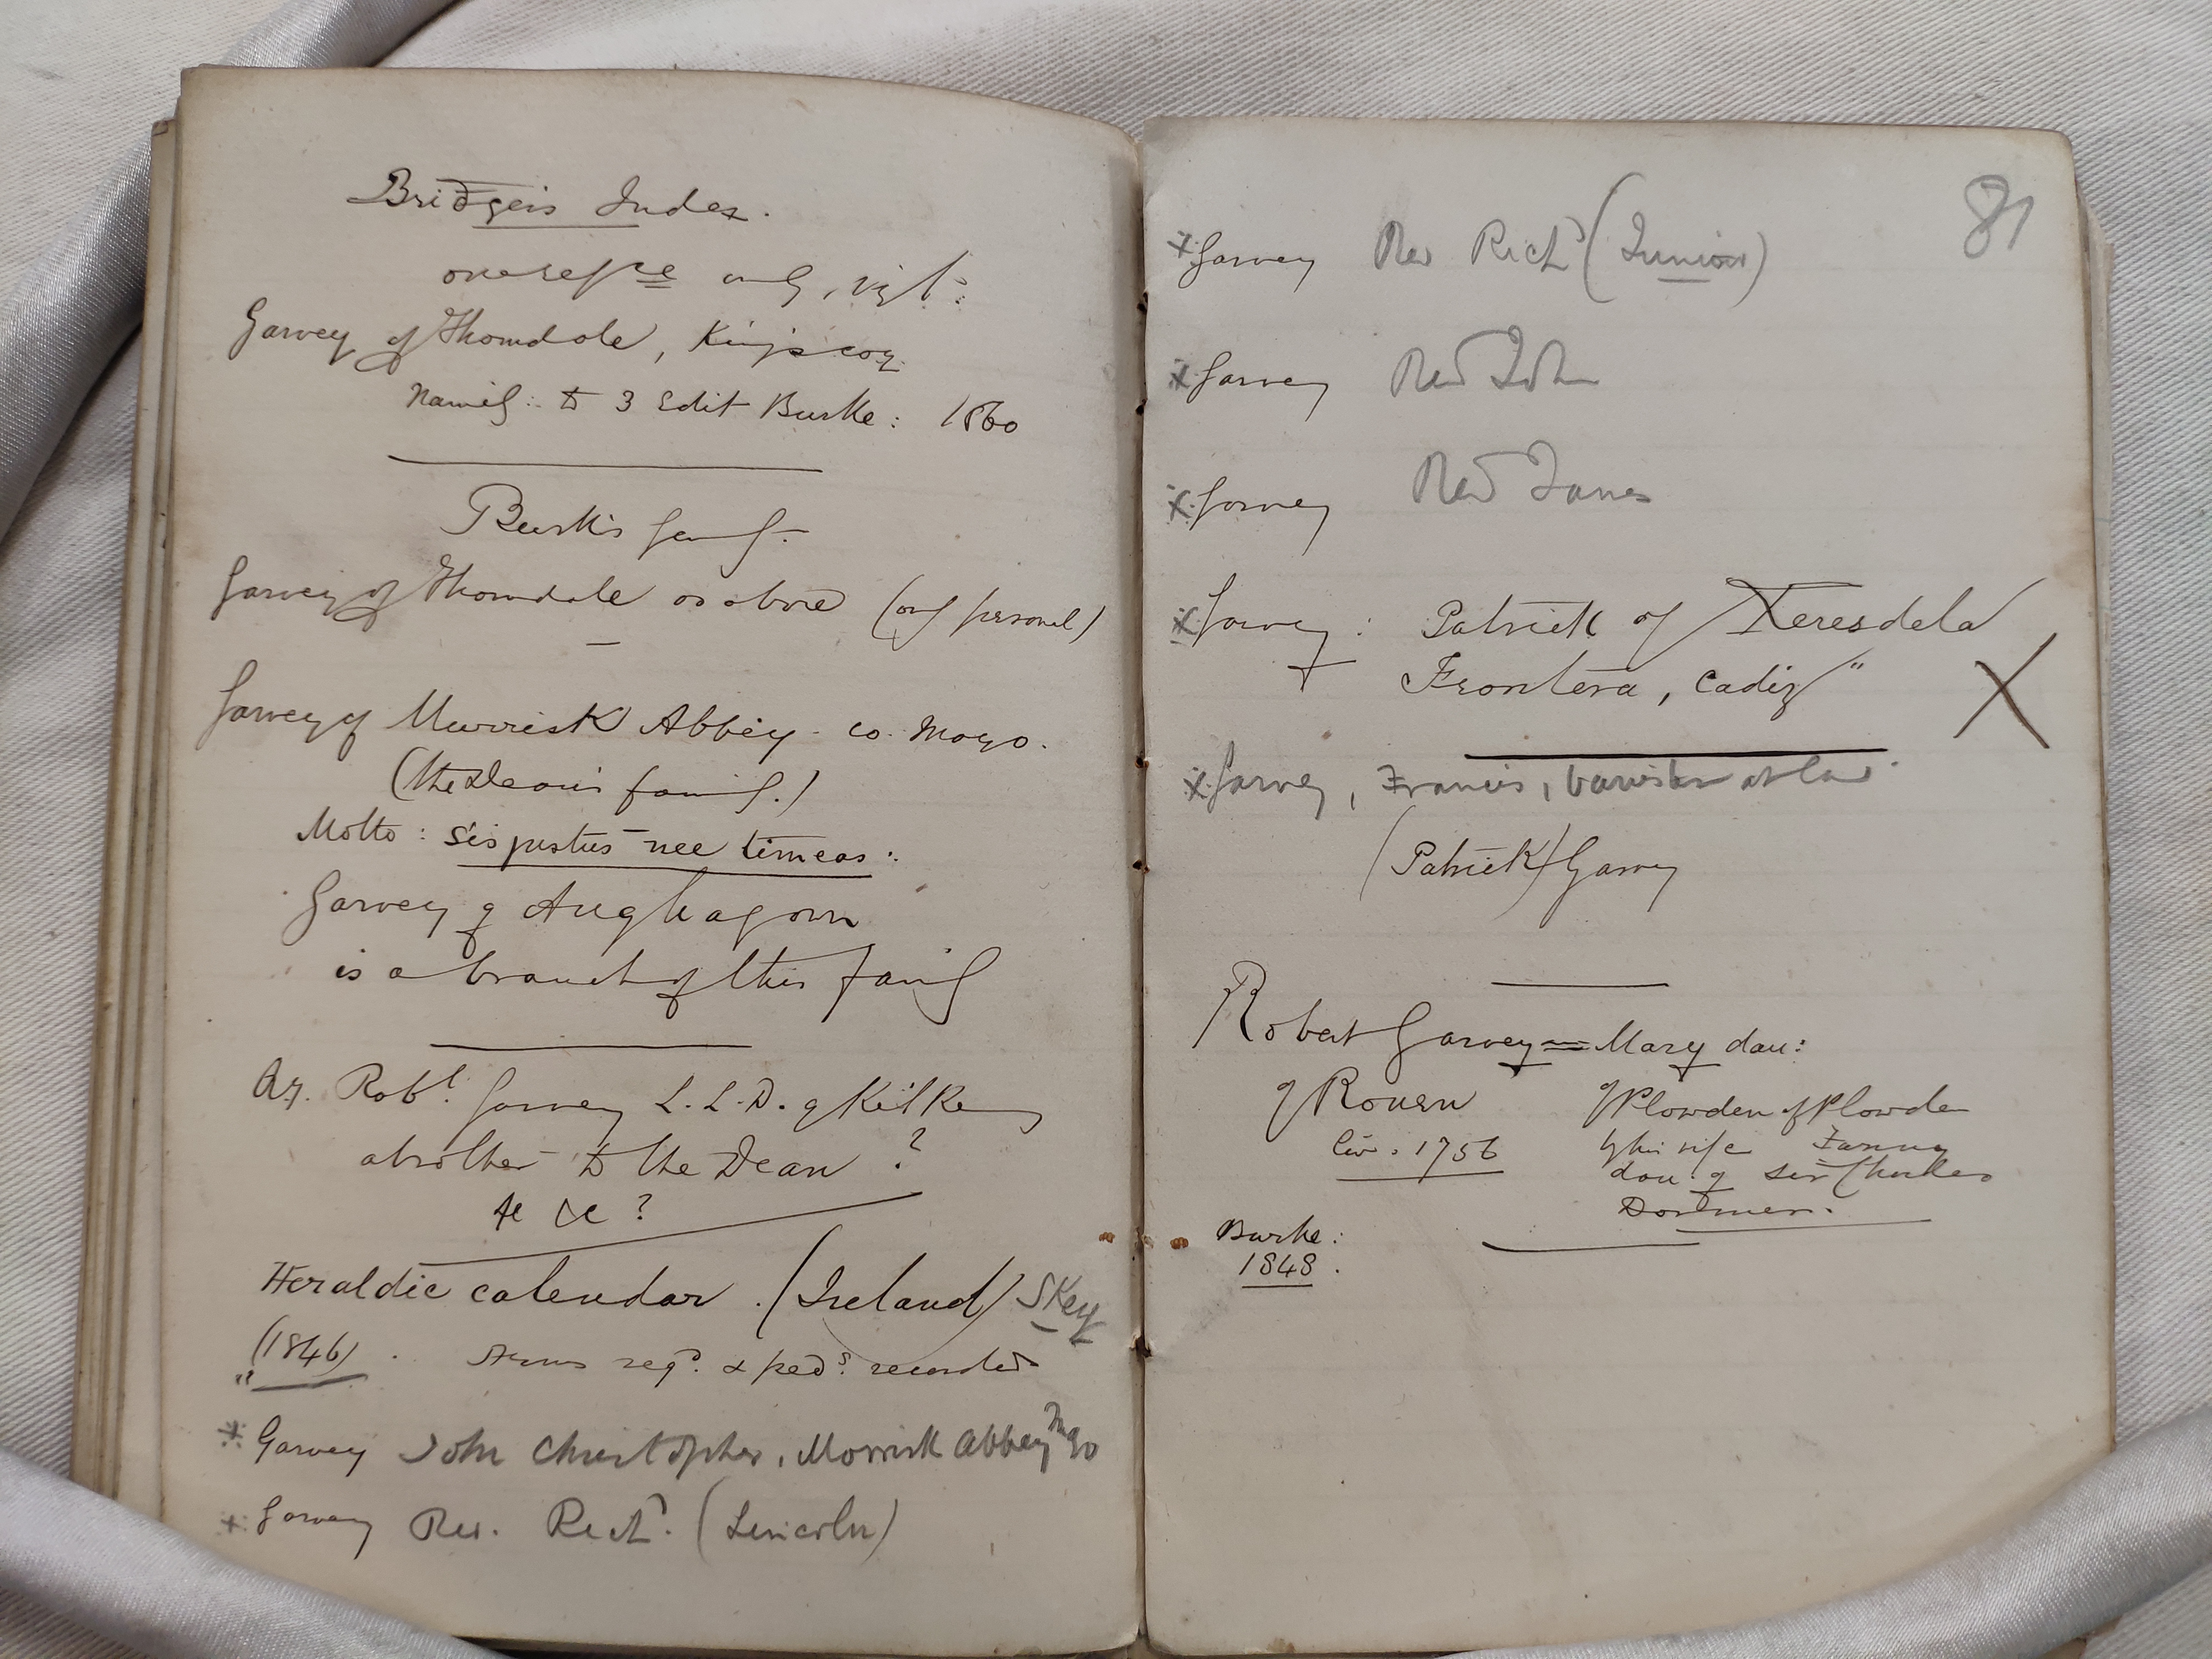 Bridger's Index.
one refce only, vizt:
Garvey of Thorndale, King's coy.
Namely: to 3 Edit Burke: 1860
Burke's
Garvey of Thorndale as above (only personal)
Garvey of Murrisk Abbey co. Mayo.
(the Dean's family.)
Motto: sis justus nec timeas:
Garvey of Aughagown
is a branch of this family
Qy. Robt Garvey L.L.D. of Kilkenny
a brother to the Dean ?
&c &c ?
Heraldic calendar. (Ireland) Skey
"(1846). Arms regd. & peds. recorded
* Garvey John Christopher, Morrisk Abbey Mayo
* Garvey Rev. Richd. (Lincoln)
81
* Garvey Rev Richd (Junior)
* Garvey Revd John
* Garvey Revd James
* Garvey: Patrick of Xeres dela
Frontera, Cadiz" X
* Garvey, Francis, barrister at law.
(Patrick) Garvey
Robert Garvey = Mary dau:
of Rouen of Plowden of Plowden
liv. 1756 by his wife Fanny
dau. of Sir Charles
Dormer.
Burke:
1848.